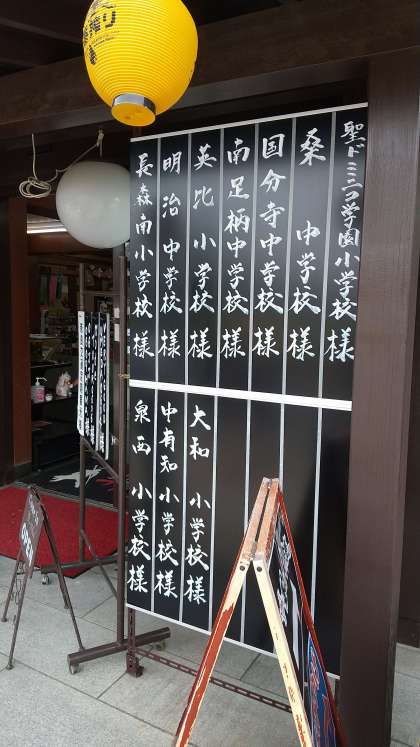 聖ドミニコ学園小学校様
桑中学校様
国分寺中学校様
南足柄中学校様
英比小学校様
明治中学校様
長森南小学校様
大和小学校様
中有知小学校様
泉西小学校様